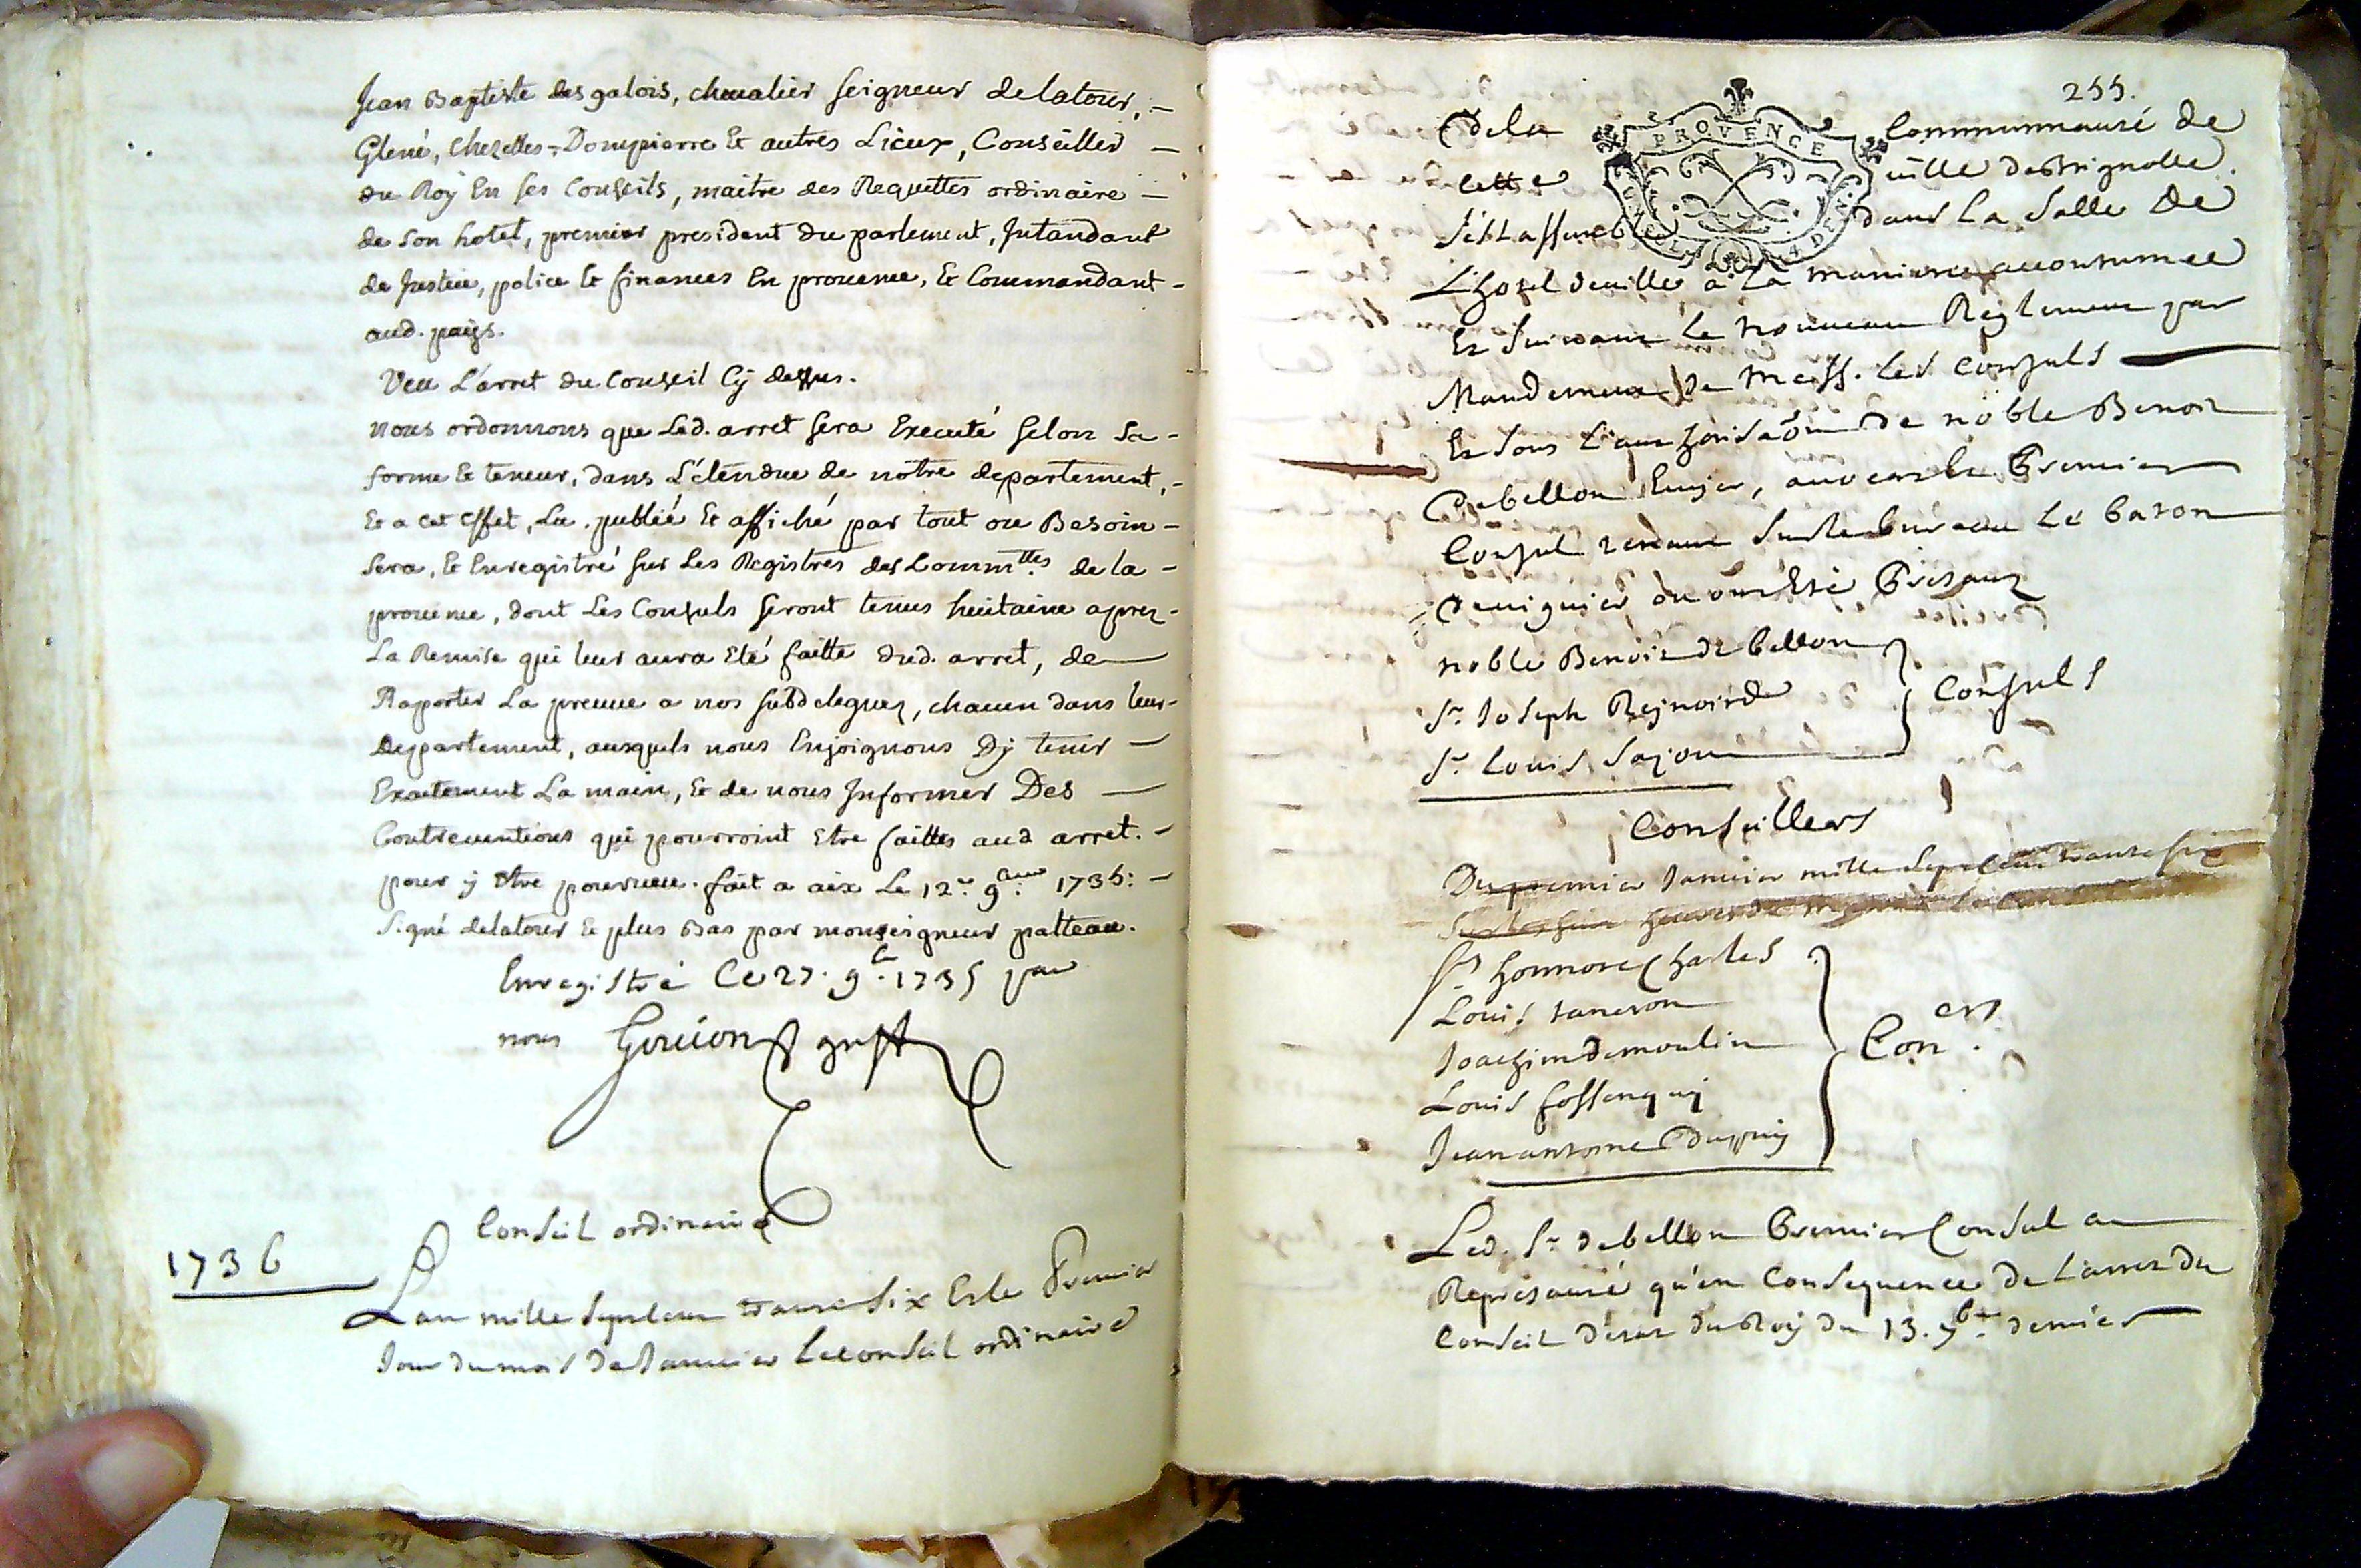 Jean Baptiste des galois, chevalier seigneur delatour, –
Glené, Chezelles, Dompierre Et autres Lieux, Conseiller –
du Roÿ En ses Conseils, maitre des Requettes ordinaire –
de son hotel, premier president du parlement, Intandant
de Justice, police Et finances En provence, Et Commandant –
aud. païs.
Veu L'arret du Conseil Cÿ dessus.
nous ordonnons que Led. arret sera Executé selon sa –
forme Et teneur, dans L'étendue de notre departement, –
Et a cet effet, Lu, publié Et affiché par tout ou Besoin –
sera, Et Enregistré sur Les Registres des Commttes de la –
provence, dont Les Consuls seront tenus huitaine aprez –
La Remise qui leur aura Eté faitte dud. arret, de –
Raporter La preuve a nos subdeleguez, chacun dans leur –
departement, ausquels nous Enjoignons Dÿ tenir –
Exactement La main, Et de nous Informer Des –
Contreventions qui pourroint Etre faittes aud arret. –
pour ÿ Etre pourveu. fait a aix Le 12e 9bre 1735: –
Signé delatour Et plus Bas par monseigneur patteau.
Enregistré Ce 27. 9bre 1735 par
nous Gouion greff
Conseil ordinaire
1736
L'an mille septcent trante six Et le Premier
Jour du mois de Janvier Le conseil ordinaire
255.
PROVENCE
De la Communauté de
cette ville de Brignolle
s'est assemblé dans La salle de
L'hotel de ville a La maniere accoutumee
Et suivant Le nouveau Reglement par
Mandement de Mess. Les consuls
Et sous L'authorisaõn de noble Benoit
De bellon Ecuyer, avocat Et Premier
Consul tenant sur le bureau Le baton
De viguier ou ont Eté Presant
noble Benoit de bellon
Sr. Joseph Reynoird
Sr. Louis Sajou
Consuls
Conseillers
Du premier Janvier mille sept cent trante six
Sur les huit heures de
Sr. honnore Charles
Louis taneron
Joachim demoulin
Louis fossenquy
Jean antoine Dupuy
Coners.
Led. Sr. debellon Premier Consul a
Represanté qu'en Consequence de L'arret du
Conseil d'état du Roÿ du 13. 7bre dernier